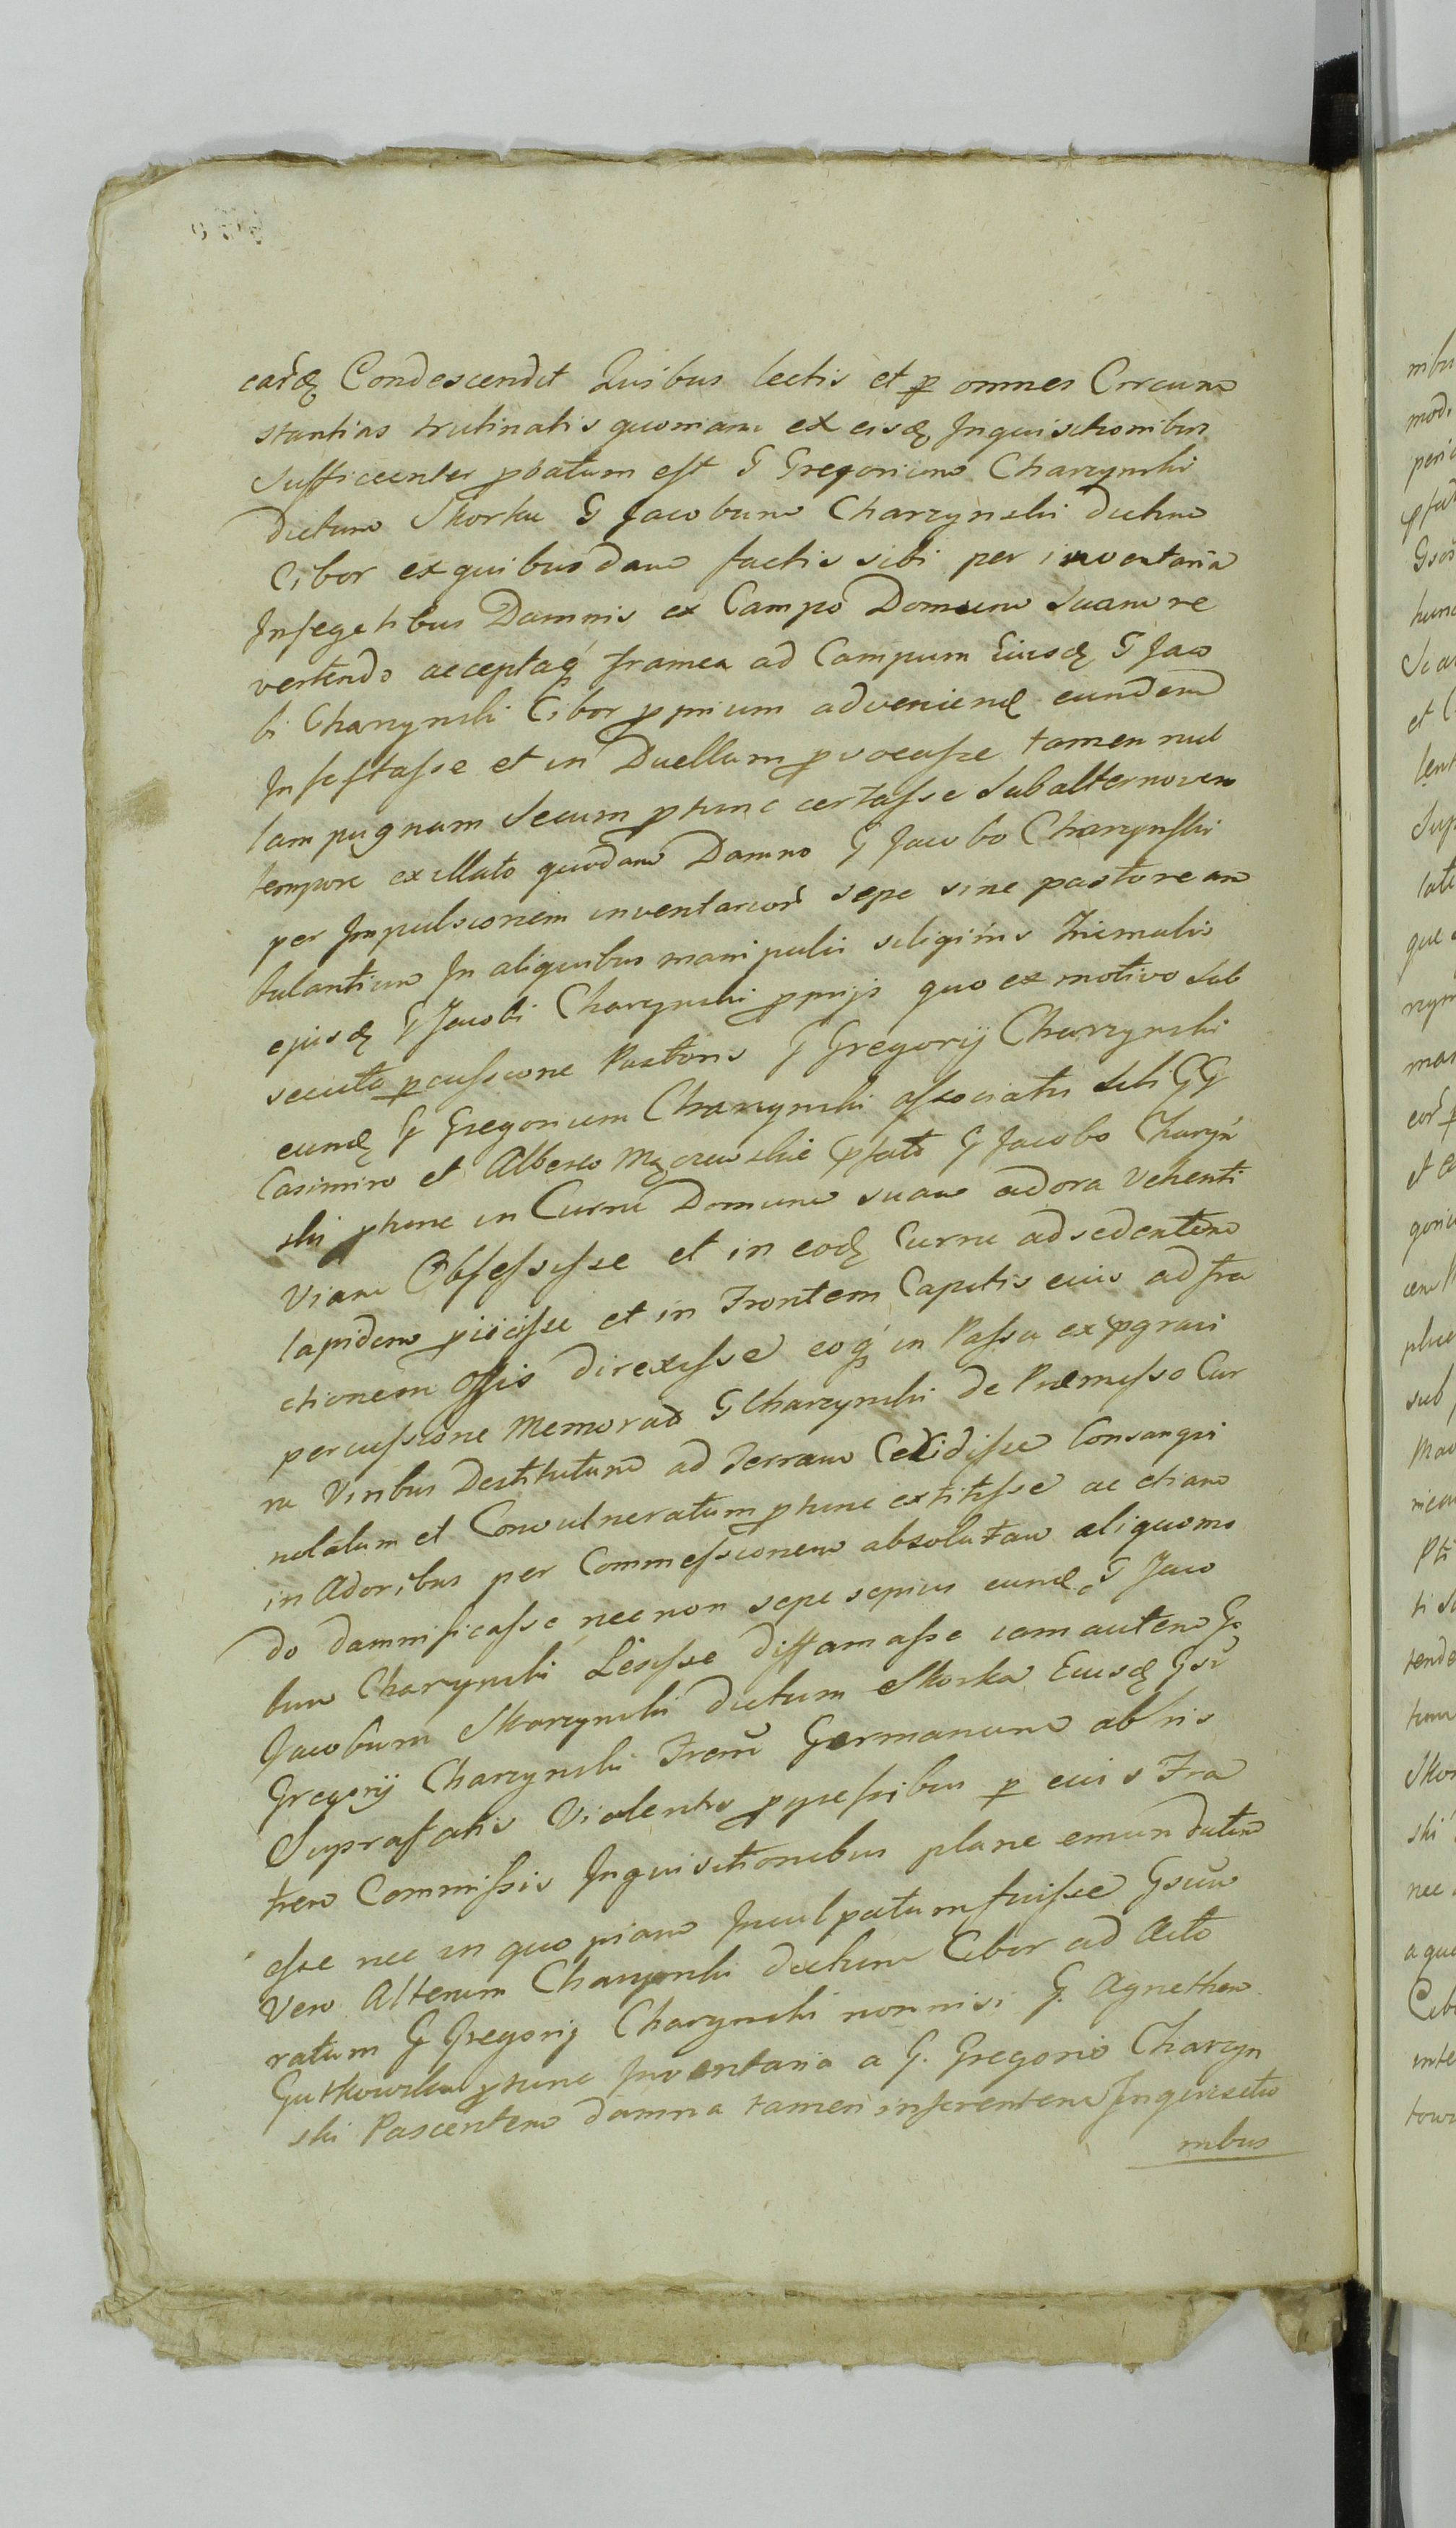 eadē Condescendit Quibus lectis et p omnes Circum
stantias trutinatis quoniam ex eisdē Inquisitionibus
Sufficienter pbatum est G Gregorium Charzynski
dictum Skorka G Jacobum Charzynski dictum
Cibor ex quibusdam factis sibi per inventaria
In segetibus Damnis ex Campo Domum Suam re
vertendo acceptaq framea ad Campum Eiusdē G Jaco
bi Charzynski Cibor pprium adveniendē eundem
Infestasse et in Duellum pvocasse tamen nul
lam pugnam Secum ptunc certasse Subalterno vero
tempore ex illato quodam Damno G Jacobo Charzynski
per Impulsionem inventarior sepe sine pastore am
bulantium In aliquibus manipulis siliginis Triemalis
ejusdē G Jacobi Charzynski pprijs quo ex motivo Sub
secuta pcussione Pastoris G Gregorij Charzynski
eundē G Gregorium Charzynski associatis sibi GG
Casimiro et Alberto pfato G Jacobo Charzyn
ski ptunc in Curru Domum suam adora Vehenti
Viam Obsessisse et in eodē Curru adsedentem
lapidem piecisse et in Frontem Capitis eius ad fra
ctionem Ossis direxisse eoq in Passu ex pgravi
percussione Memorat G Charzynski de Præmisso Cur
ru Viribus Destitutum ad Terram Cecidisse Consangui
nolatum et Convulneratum ptunc extitisse ac etiam
in Adoribus per Commessionem absolutam aliquomo
do damnificasse necnon sepe sepius eundē G Jaco
bum Charzynski Lesisse diffamasse iam autem G
Jacobum Skarzynski dictum Skorka Eiusdē Gsi
Gregorij Charzynski Frem Germanum ab his
Suprafatis Violentis pgressibus p euis Fra
trem Commissis Inquisitionibus plane emundatum
esse nec in quopiam Inculpatum fuisse Gsum
Vero Alterum Charzynski dictum Cibor ad Acto
ratum G Gregorij Charzynski nonnisi G. Agnethem
ptunc Inventaria a G. Gregorio Charzyn
ski Pascentem damna tamen inferentem Inquisitio
nibus